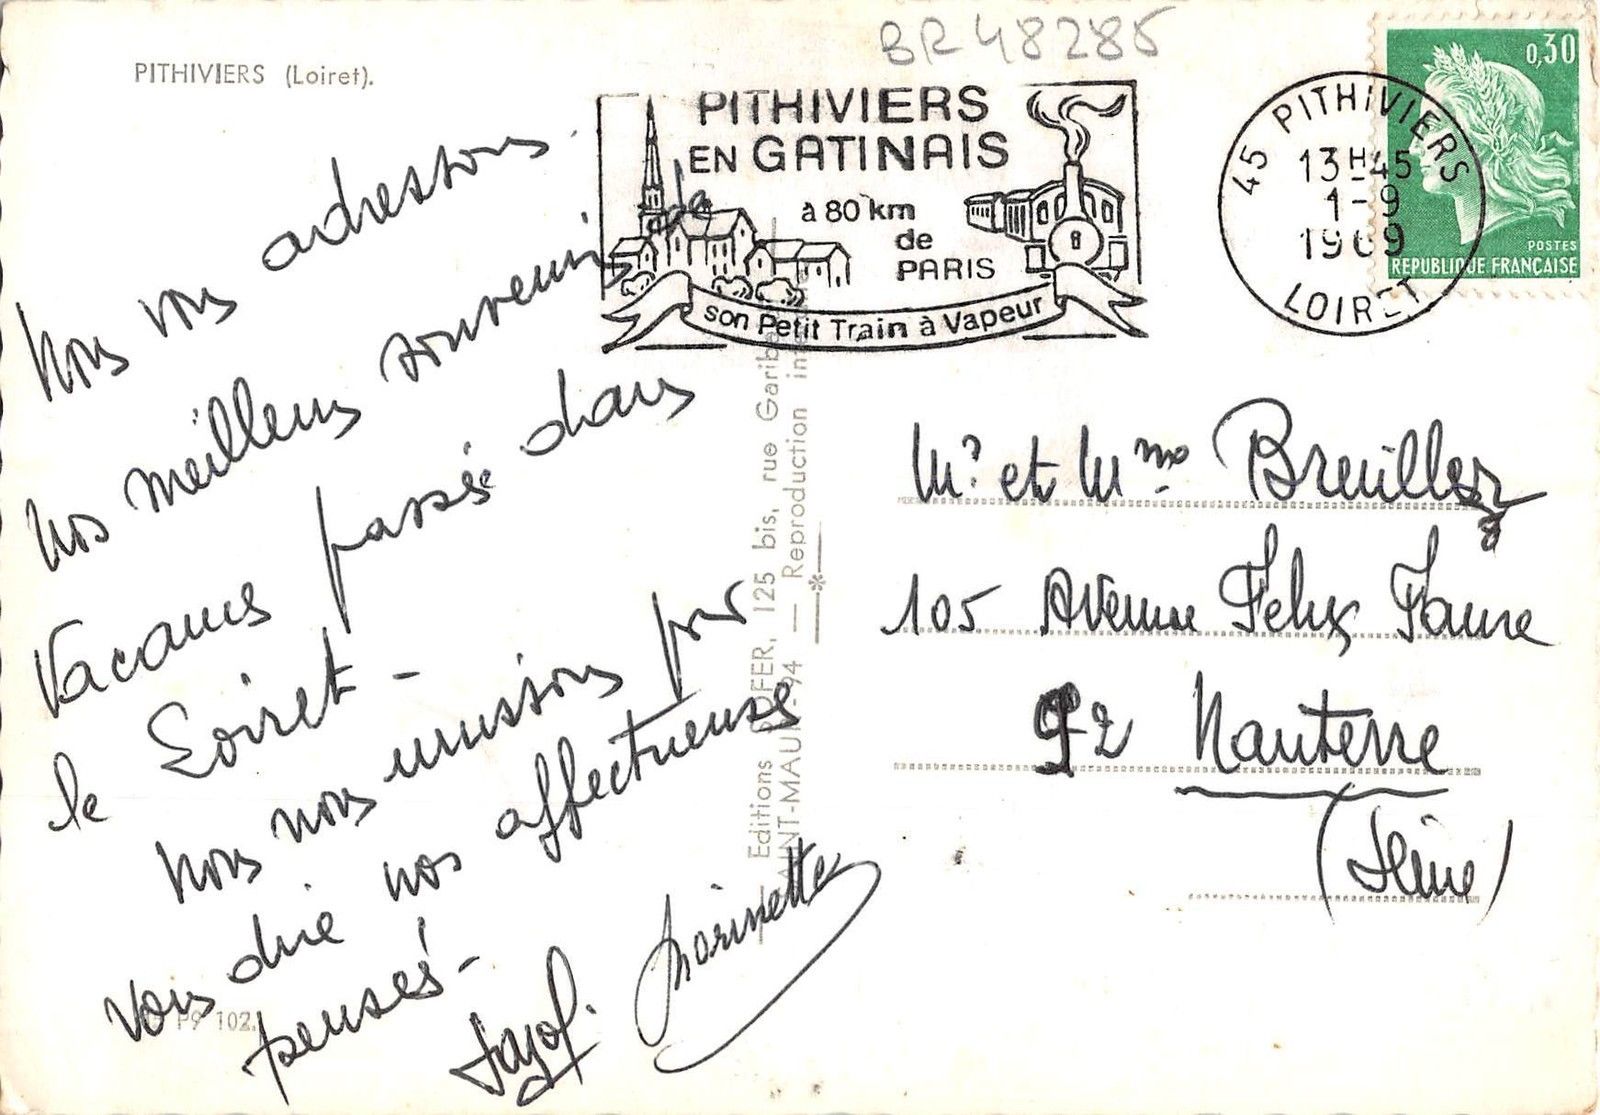 BR 48285
PITHIVIERS (Loiret).
PITHIVIERS
EN GATINAIS
à 80 km
de
PARIS
son Petit Train à Vapeur
45 PITHIVIERS
13H45
1-9
1969
LOIRET
0,30
POSTES
REPUBLIQUE FRANÇAISE
Nous vous adressons
nos meilleurs souvenirs de
vacances passés dans
le Loiret -
Nous nous unissons pour
vous dire nos affectueuses
pensées -
Editions RAFFER, 125 bis, rue Garib
SAINT-MAUR-94 — Reproduction inter
P9 102.
Mr et Mme
105 Avenue Felix Faure
92 Nanterre
(Seine)